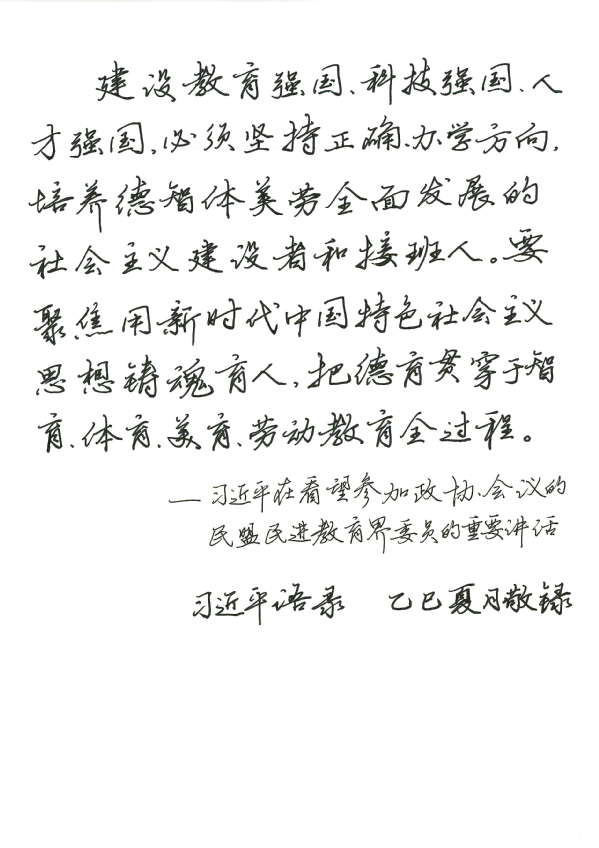 建设教育强国、科技强国、人
才强国,必须坚持正确办学方向,
培养德智体美劳全面发展的
社会主义建设者和接班人。要
聚焦用新时代中国特色社会主义
思想铸魂育人,把德育贯穿于智
育、体育、美育、劳动教育全过程。
—习近平在看望参加政协会议的
民盟民进教育界委员的重要讲话
习近平语录 乙巳夏月敬录